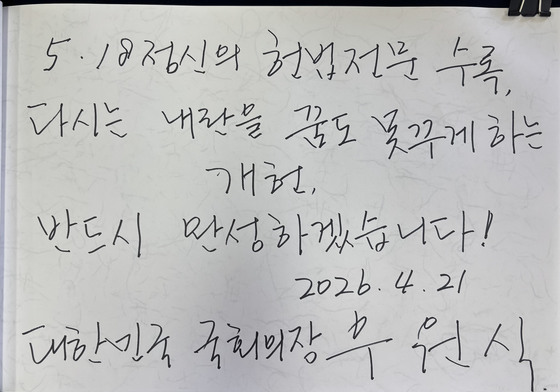 5·18정신의 헌법전문 수록,
다시는 내란을 꿈도 못꾸게 하는
개헌,
반드시 완성하겠습니다!
2026.4.21
대한민국 국회의장 우원식